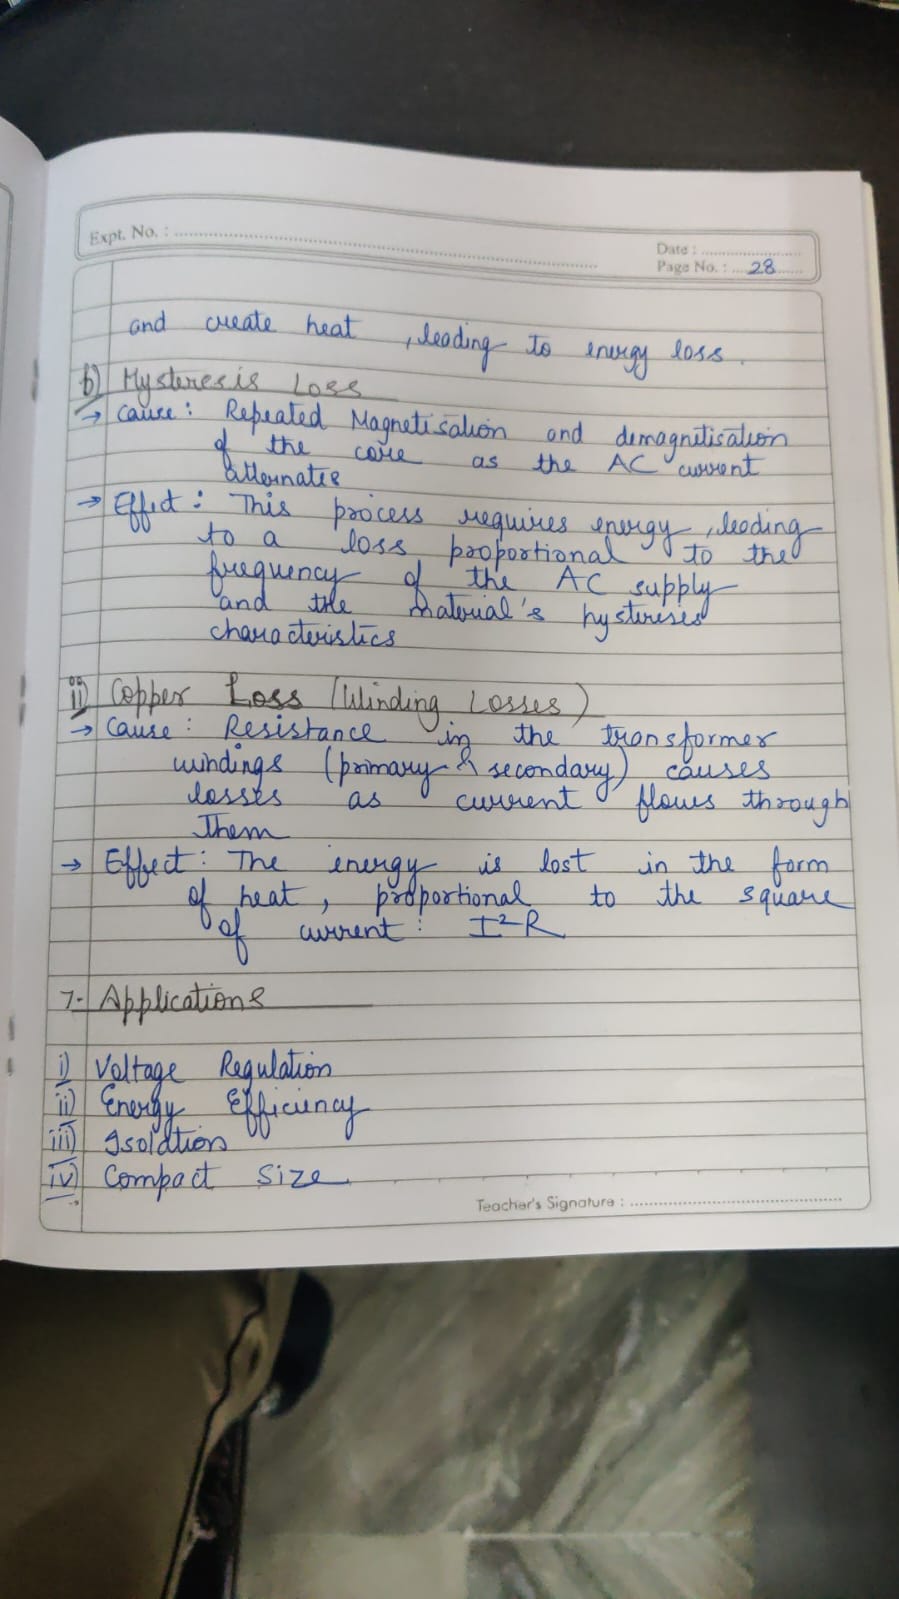 Expt. No. :
Date :
Page No. : 28
and create heat, leading to energy loss.
b) Hysteresis Loss
→ Cause : Repeated Magnetisation and demagnetisation
of the core as the AC current
alternates
→ Effect : This process requires energy, leading
to a loss proportional to the
frequency of the AC supply
and the material's hystereses
characteristics
ii) Copper Loss (Winding Losses)
→ Cause : Resistance in the transformer
windings (primary & secondary) causes
losses as current flows through
Them
→ Effect : The energy is lost in the form
of heat, proportional to the square
of current : I²R
7- Applications
i) Voltage Regulation
ii) Energy Efficiency
iii) Isolation
iv) Compact Size
Teacher's Signature :